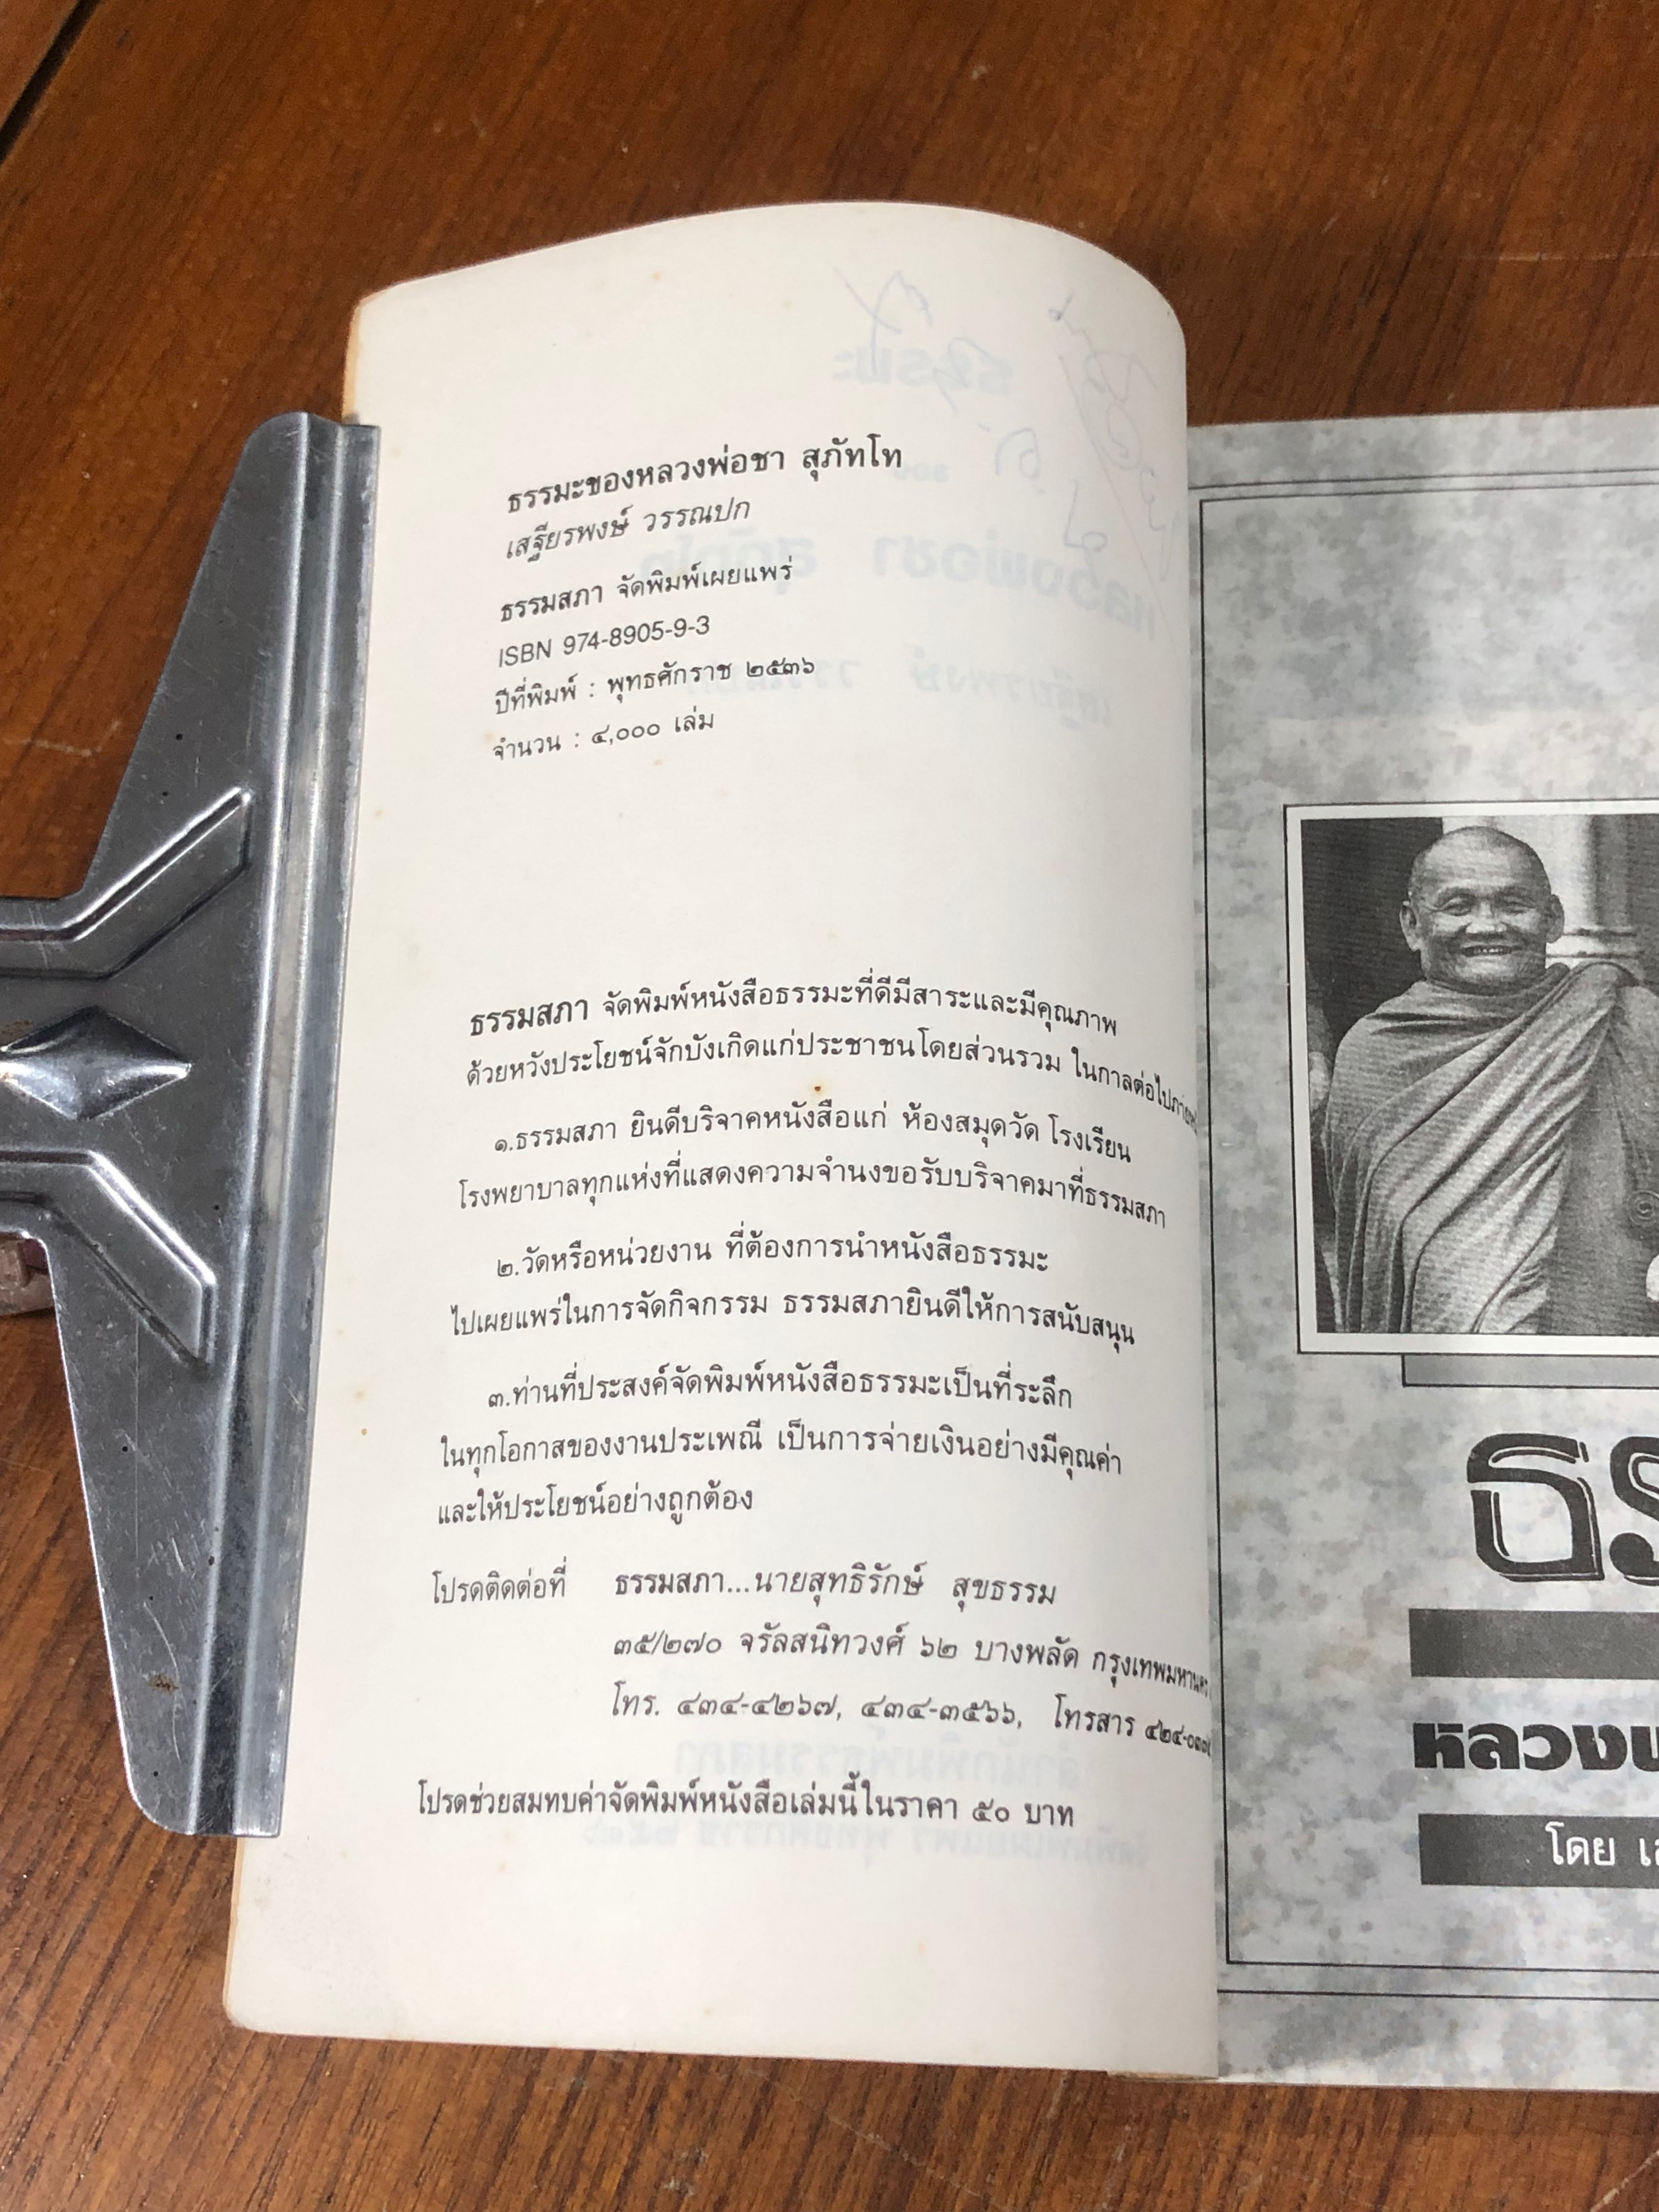 ธรรมะของหลวงพ่อชา สุภัทโท
เสฐียรพงษ์ วรรณปก
ธรรมสภา จัดพิมพ์เผยแพร่
ISBN 974-8905-9-3
ปีที่พิมพ์ : พุทธศักราช ๒๕๓๖
จำนวน : ๔,๐๐๐ เล่ม
ธรรมสภา จัดพิมพ์หนังสือธรรมะที่ดีมีสาระและมีคุณภาพ
ด้วยหวังประโยชน์จักบังเกิดแก่ประชาชนโดยส่วนรวม ในกาลต่อไปภายหน้า
๑.ธรรมสภา ยินดีบริจาคหนังสือแก่ ห้องสมุดวัด โรงเรียน
โรงพยาบาลทุกแห่งที่แสดงความจำนงขอรับบริจาคมาที่ธรรมสภา
๒.วัดหรือหน่วยงาน ที่ต้องการนำหนังสือธรรมะ
ไปเผยแพร่ในการจัดกิจกรรม ธรรมสภายินดีให้การสนับสนุน
๓.ท่านที่ประสงค์จัดพิมพ์หนังสือธรรมะเป็นที่ระลึก
ในทุกโอกาสของงานประเพณี เป็นการจ่ายเงินอย่างมีคุณค่า
และให้ประโยชน์อย่างถูกต้อง
โปรดติดต่อที่ ธรรมสภา...นายสุทธิรักษ์ สุขธรรม
๓๕/๒๗๐ จรัลสนิทวงศ์ ๖๒ บางพลัด กรุงเทพมหานคร
โทร. ๔๓๔-๔๒๖๗, ๔๓๔-๓๕๖๖, โทรสาร
โปรดช่วยสมทบค่าจัดพิมพ์หนังสือเล่มนี้ในราคา ๕๐ บาท
ธร
หลวงพ
โดย เส